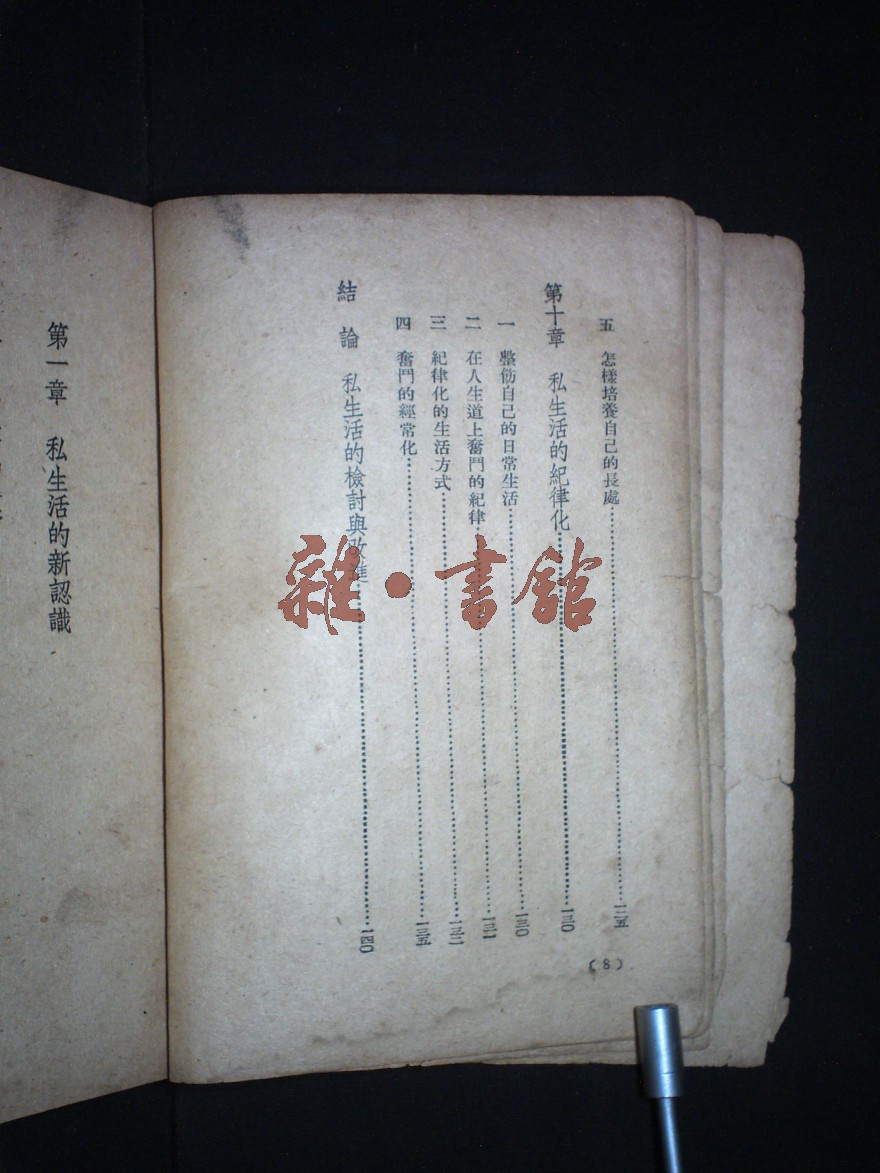 五　怎樣培養自己的長處…………一二五
第十章　私生活的紀律化…………一三〇
一　整飭自己的日常生活…………一三〇
二　在人生道上奮鬥的紀律…………一三一
三　紀律化的生活方式…………一三二
四　奮鬥的經常化…………一三五
結　論　私生活的檢討與改進…………一四〇
(8)
第一章　私生活的新認識
雜·書館